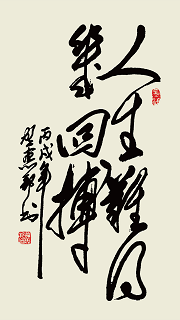 人生難得
幾回搏
丙戌年